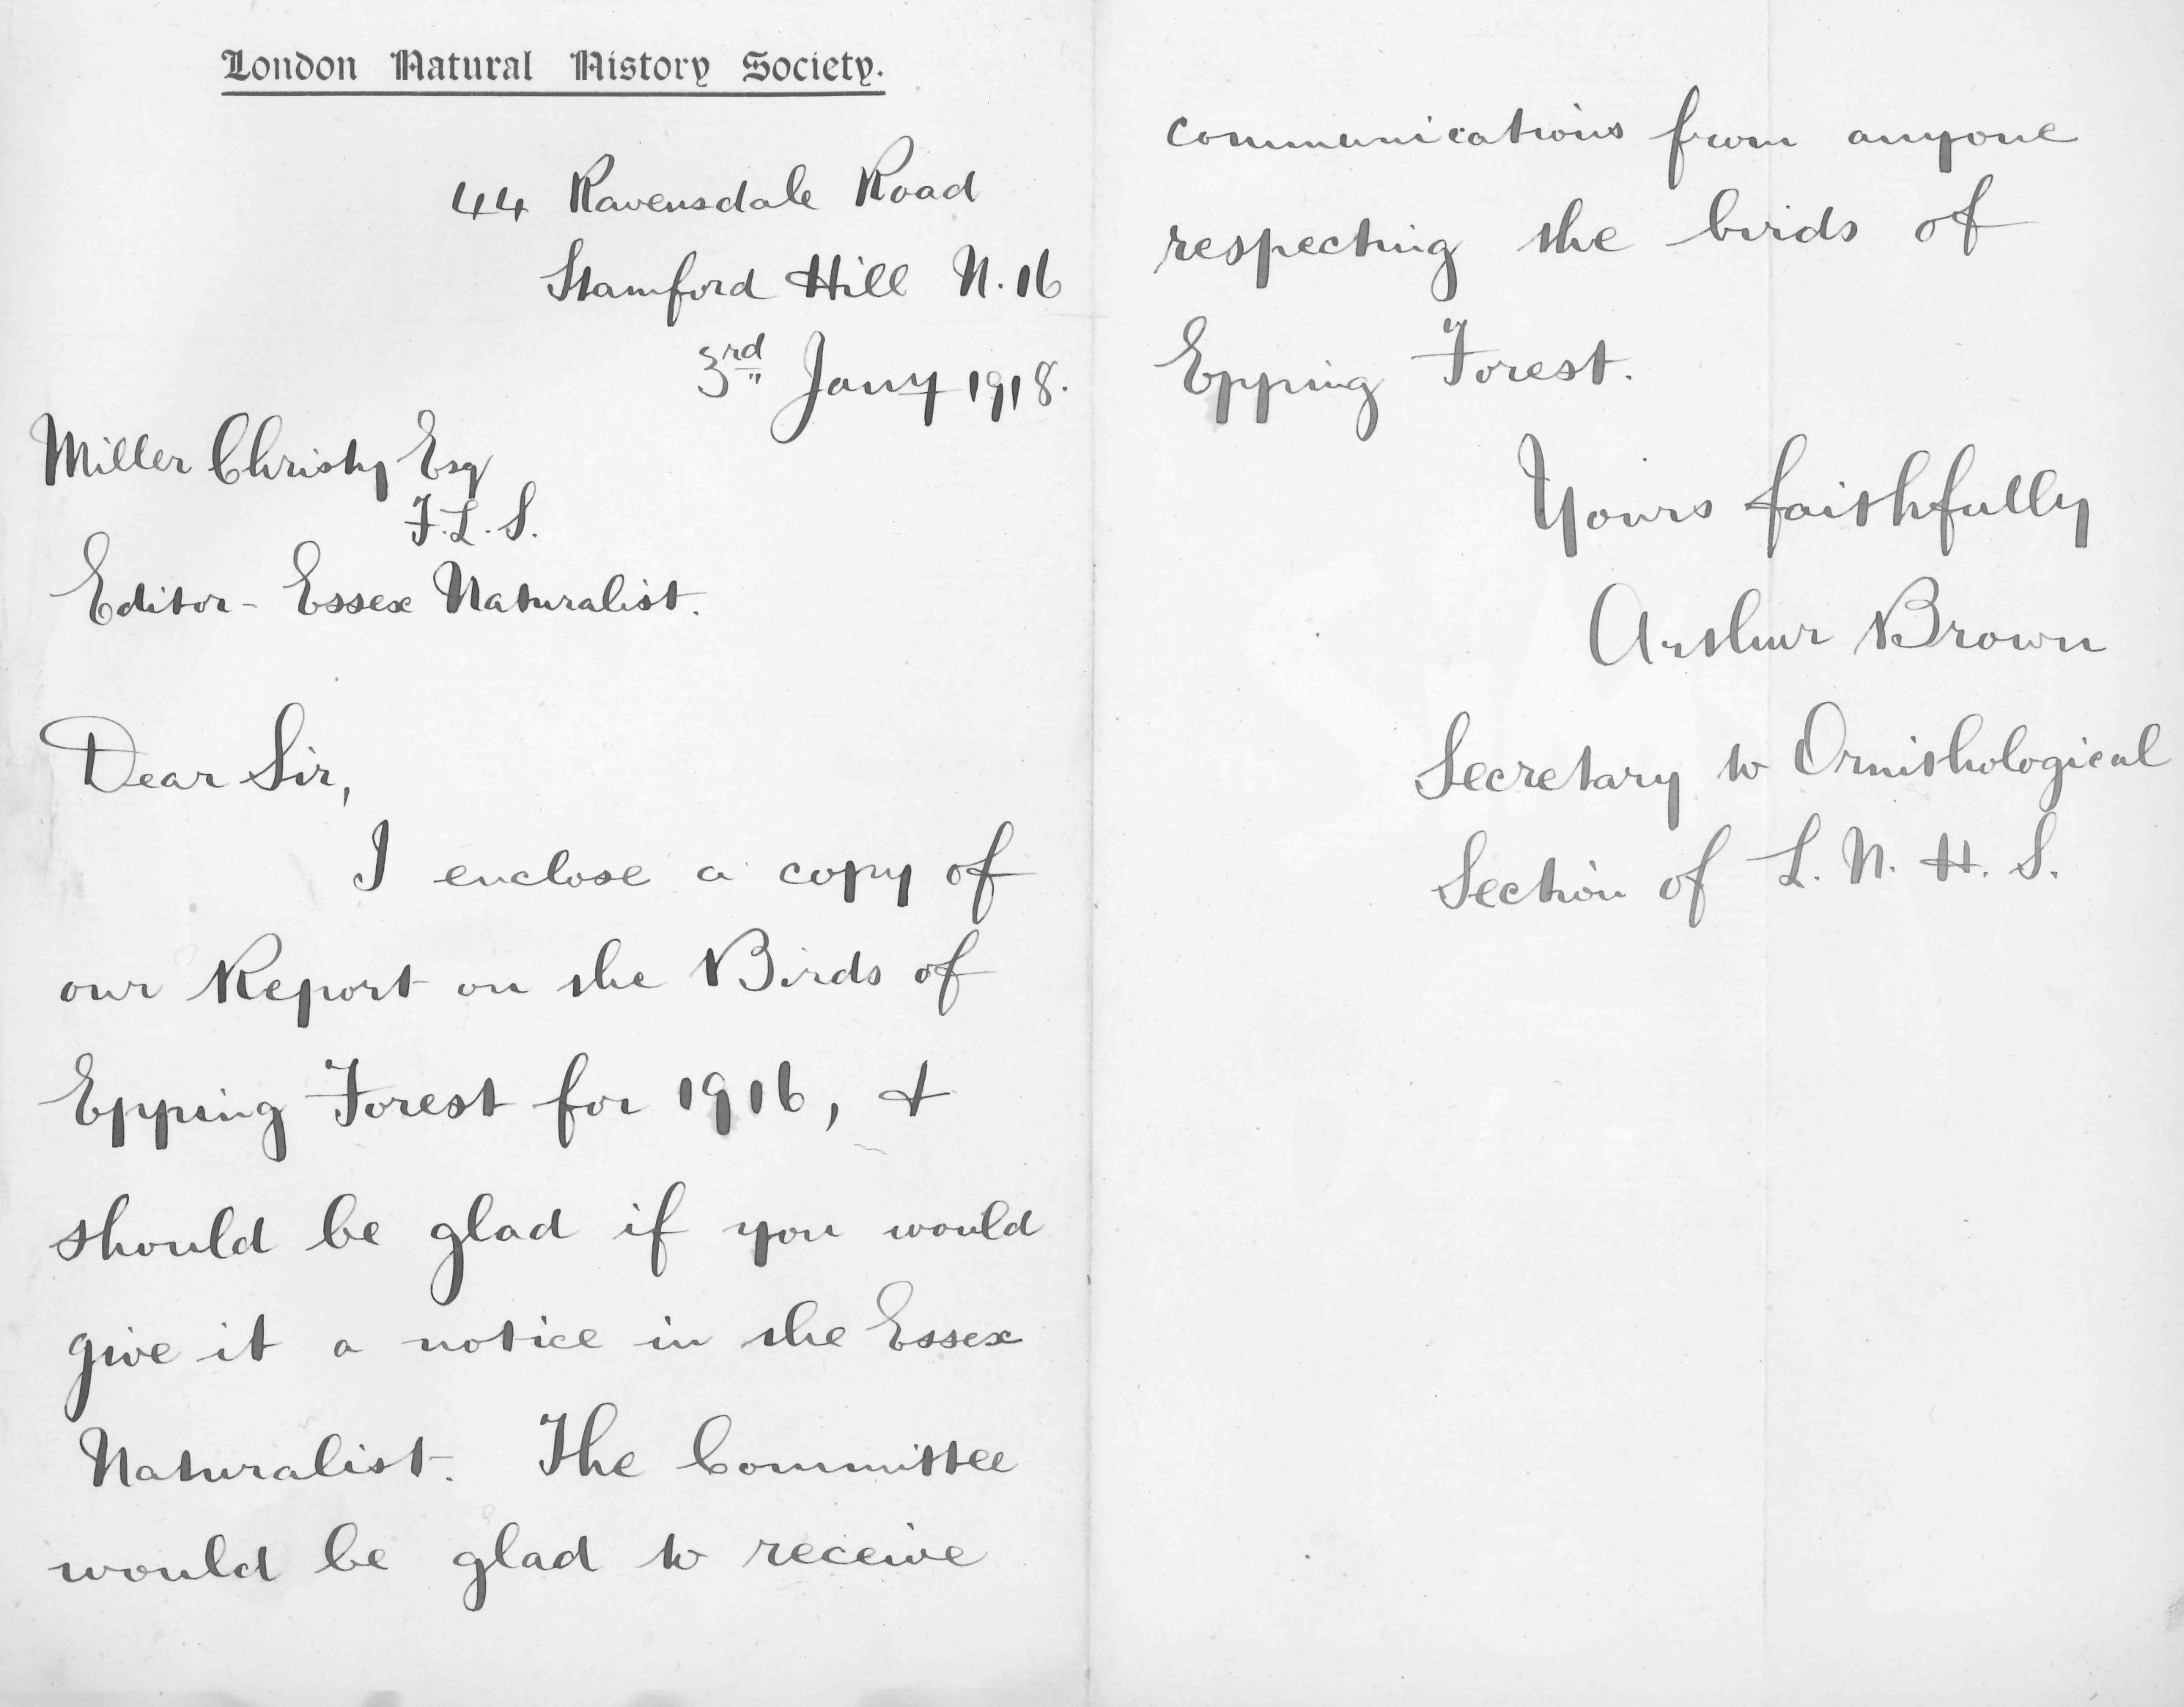 London Natural History Society.
44 Ravensdale Road
Stamford Hill N.16
3rd Jany 1918.
Miller Christy Esq
F.L.S.
Editor - Essex Naturalist.
Dear Sir,
I enclose a copy of
our Report on the Birds of
Epping Forest for 1916, &
should be glad if you would
give it a notice in the Essex
Naturalist. The Committee
would be glad to receive
communications from anyone
respecting the birds of
Epping Forest.
Yours faithfully
Arthur Brown
Secretary to Ornithological
Section of L. N. H. S.